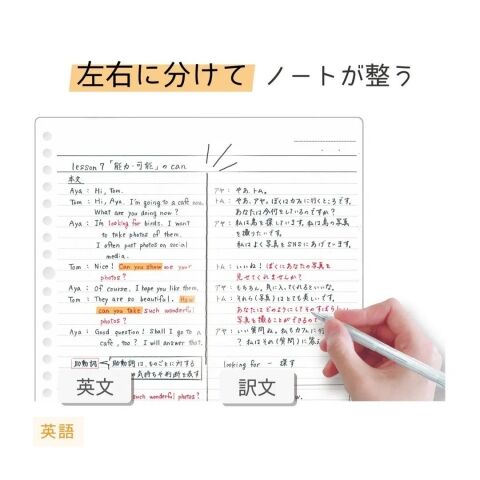 左右に分けて ノートが整う
lesson 7 「能力・可能」の can
本文
Aya : Hi, Tom.
Tom : Hi, Aya. I'm going to a cafe now.
What are you doing now?
Aya : I'm looking for birds. I want
to take photos of them.
I often post photos on social
media.
Tom : Nice! Can you show me your
photos?
Aya : Of course. I hope you like them.
Tom : They are so beautiful. How
can you take such wonderful
photos?
Aya : Good question! Shall I go to a
cafe, too? I will answer that.
助動詞 助動詞は、ものごとに対する
気持ちや判断を表す
such wonderful photos?
アヤ : やあ、トム。
トム : やあ、アヤ。ぼくはカフェに行くところです。
あなたは今何をしているのですか?
アヤ : 私は鳥を探しています。私は鳥の写真
を撮りたいです。
私はよく写真をSNSにあげています。
トム : いいね! ぼくにあなたの写真を
見せてくれませんか?
アヤ : もちろん。気に入ってくれるといいな。
トム : それら(写真)はとても美しいです。
あなたはどのようにしてそのすばらしい
写真を撮ることができるので
アヤ : いい質問ね。私もカフェに行
? 私はその(質問)に答え
looking for - 探す
英文
訳文
英語